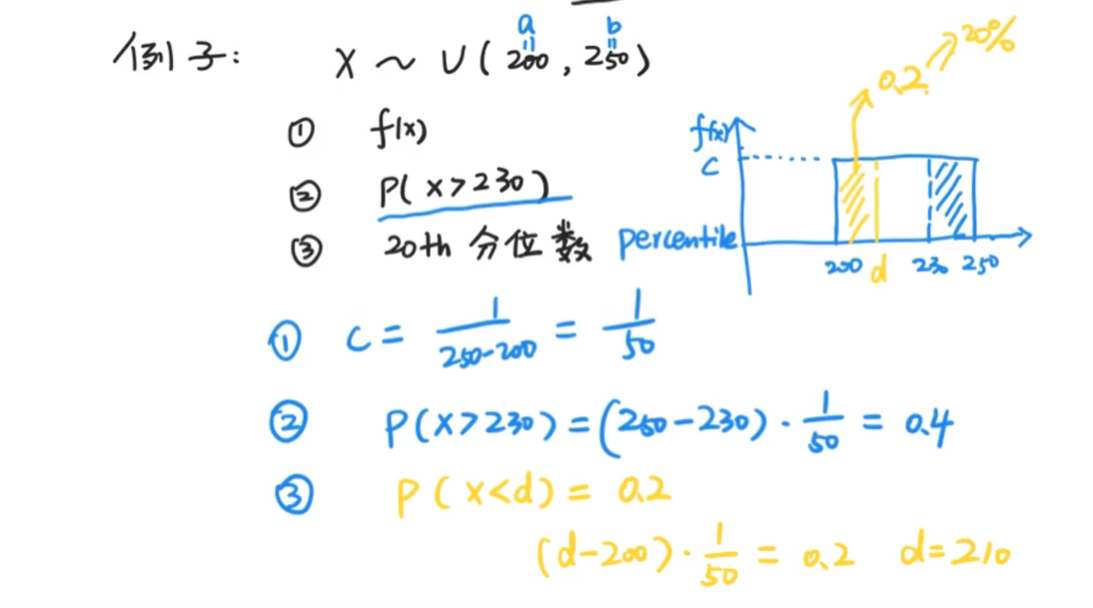 例子: X ~ U(200, 250)
a b
① f(x)
② P(X>230)
③ 20th 分位数 percentile
f(x)
C
0.2 20%
200 d 230 250
① C = 1/(250-200) = 1/50
② P(X>230) = (250-230) · 1/50 = 0.4
③ P(X<d) = 0.2
(d-200) · 1/50 = 0.2 d=210